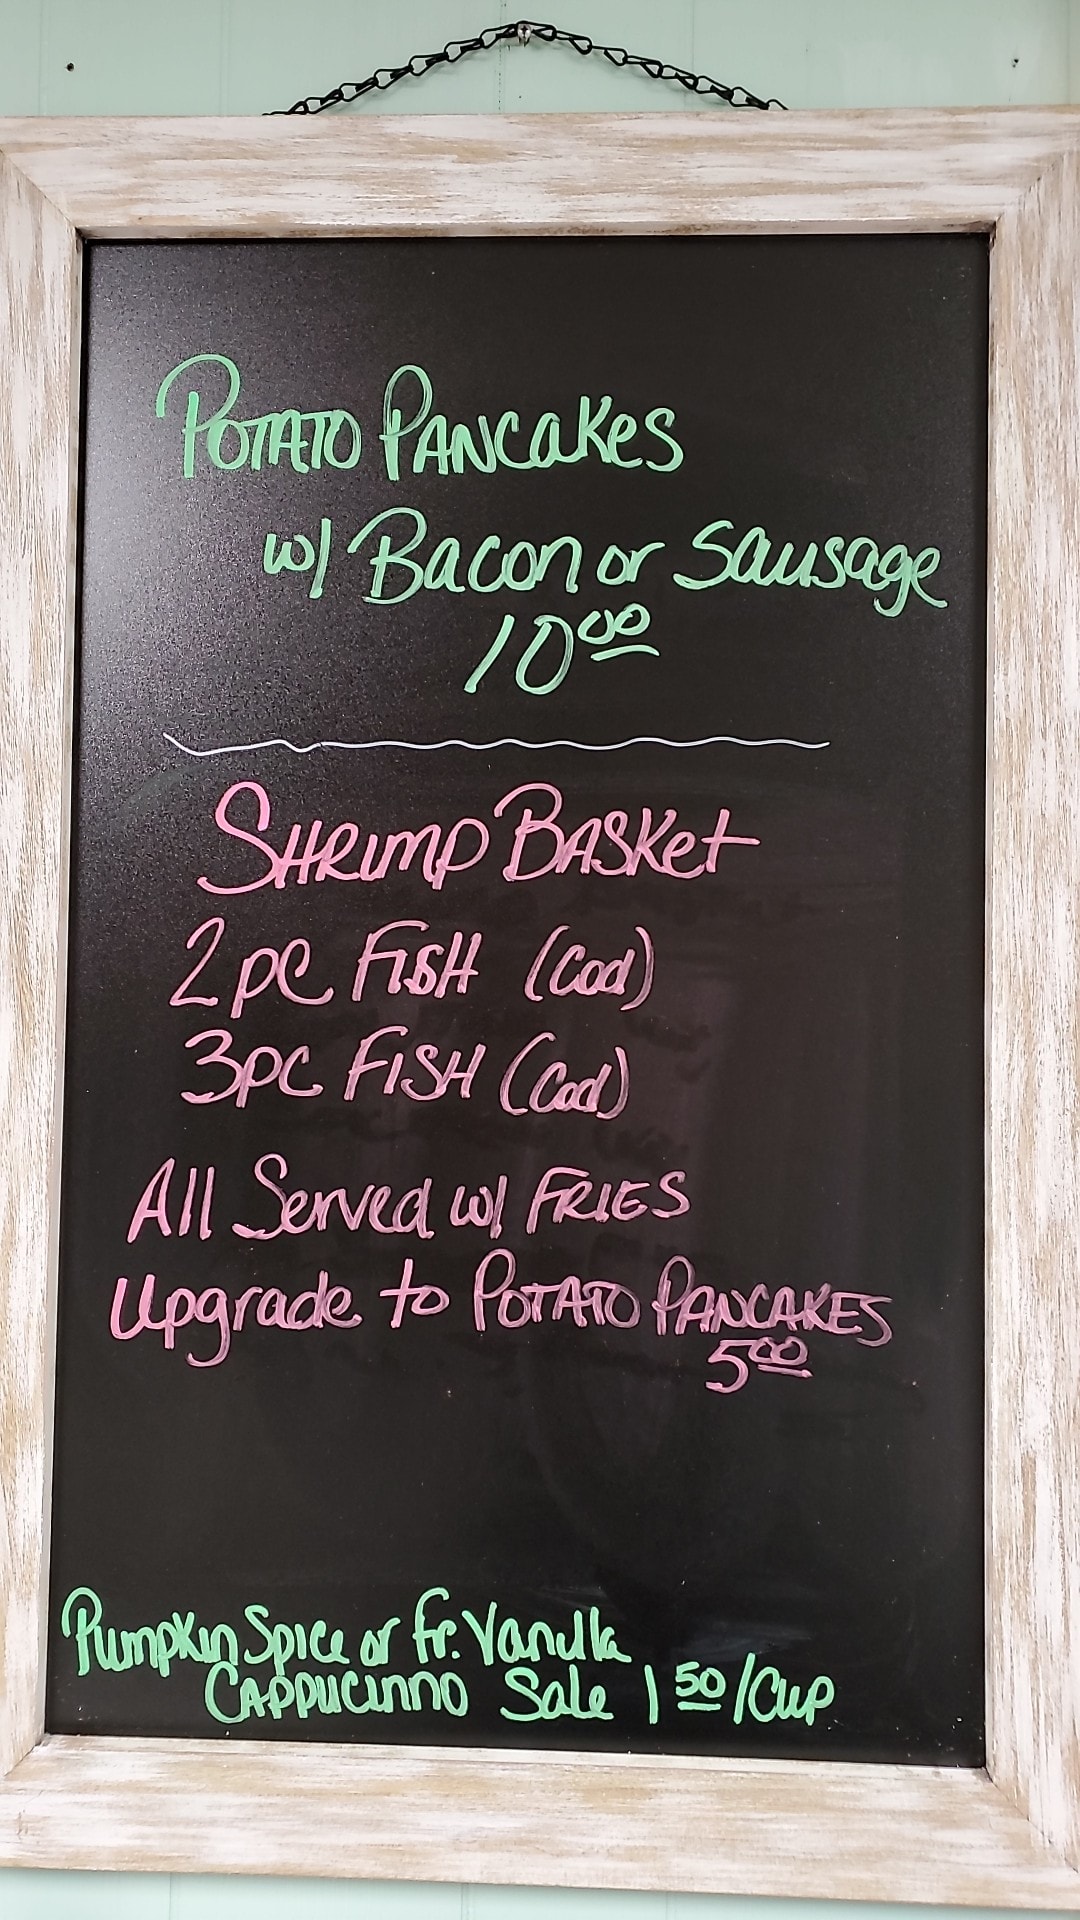 Potato Pancakes
w/ Bacon or Sausage
10 00
Shrimp Basket
2 pc Fish (Cod)
3 pc Fish (Cod)
All Served w/ Fries
Upgrade to Potato Pancakes
5 00
Pumpkin Spice or Fr. Vanilla
Cappucinno Sale 1 50/Cup